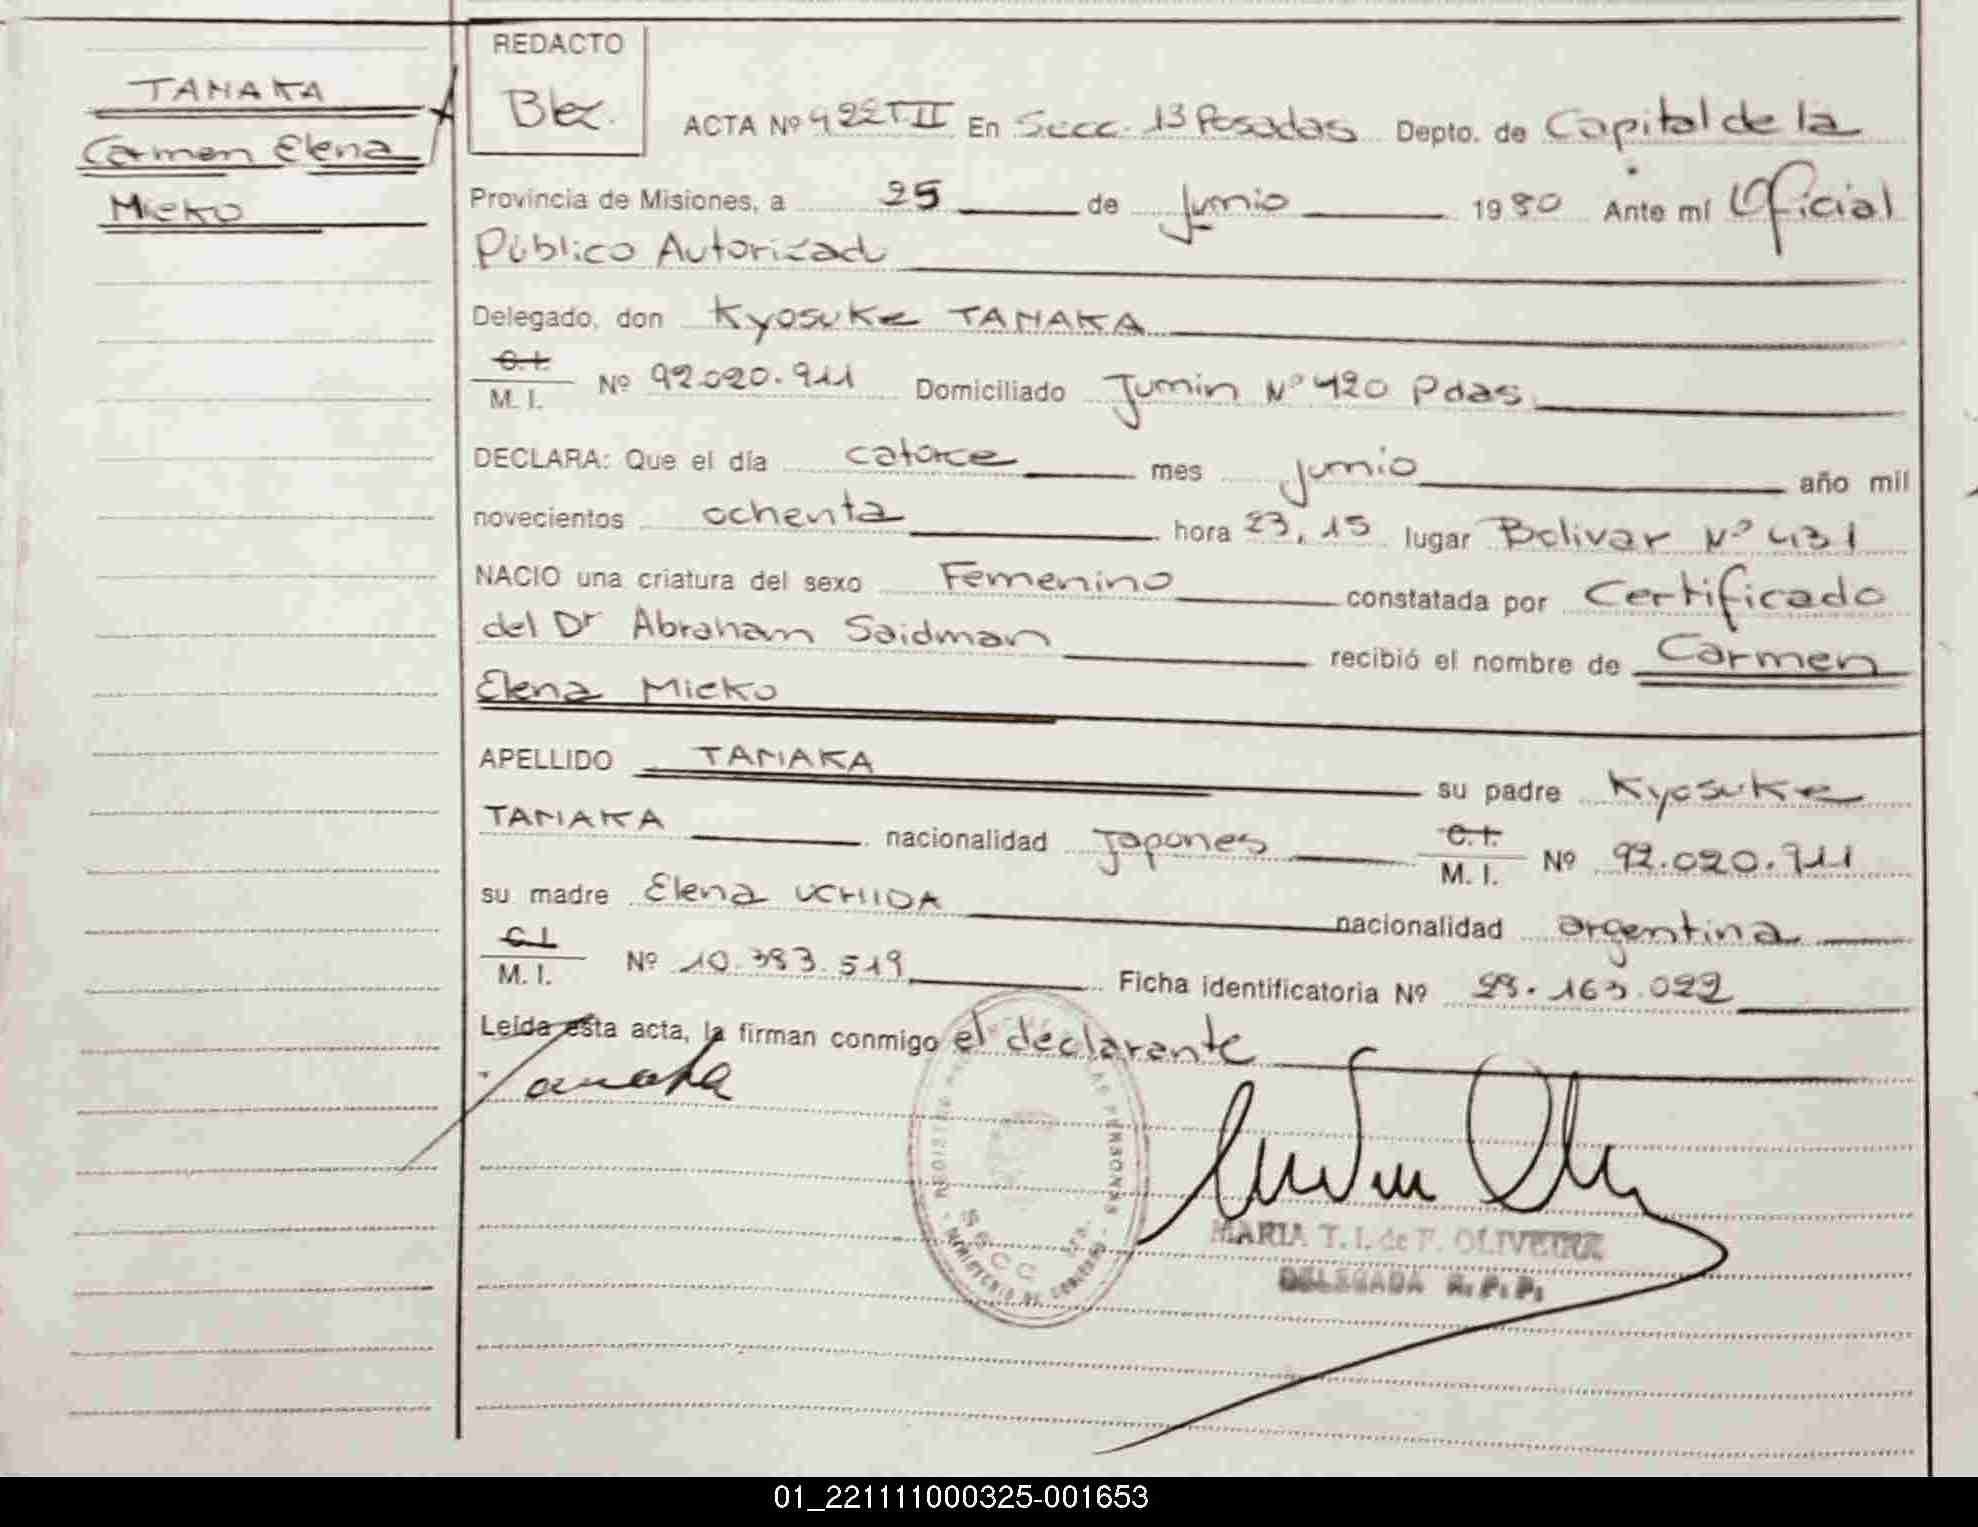 TANAKA
Carmen Elena
Mieko
REDACTO
ACTA Nº 422 T II En Secc. 1ª Posadas Depto. de Capital de la
Provincia de Misiones, a 25 de junio 1980 Ante mí Oficial
Público Autorizad
Delegado, don Kyosuke TANAKA
C.I.
M. I. Nº 92.020.911 Domiciliado Junin Nº 420 Pdas
DECLARA: Que el día catorce mes junio año mil
novecientos ochenta hora 23,15 lugar Bolivar Nº 431
NACIO una criatura del sexo Femenino constatada por Certificado
del Dr Abraham Saidman recibió el nombre de Carmen
Elena Mieko
APELLIDO TANAKA su padre Kyosuke
TANAKA nacionalidad japones C.I.
M. I. Nº 92.020.911
su madre Elena UCHIDA nacionalidad argentina
C.I.
M. I. Nº 10.383.519 Ficha identificatoria Nº 28.163.022
Leída esta acta, la firman conmigo el declarante
Tanaka
REGISTRO LAS PERSONAS
SECC
MINISTERIO DE GOBIERNO
MARIA T. I. de F. OLIVEIRA
DELEGADA R. P. P.
01_221111000325-001653